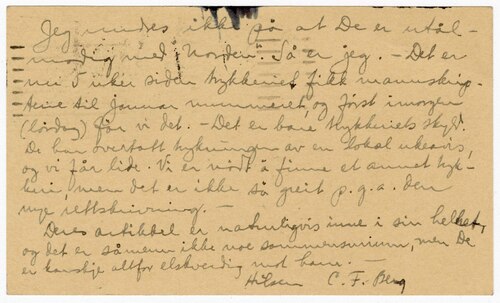 Jeg undres ikke på at De er utål-
modig med Norden. Så er jeg. - Det er
nu 5 uker siden trykkeriet fikk manuskrip-
tene til Januar nummeret, og først imorgen
(lördag) får vi det. - Det er bare trykkeriets skyld.
De har overtatt trykningen av en lokal ukeavis,
og vi får lide. Vi er nödt å finne et annet tryk-
keri, men det er ikke så greit p.g.a. den
nye rettskrivning. -
Deres artikkel er naturligvis inne i sin helhet,
og det er såmenn ikke noe sammensurium, men De
er kanskje altfor elskverdig mot ham. -
Hilsen C. F. Berg